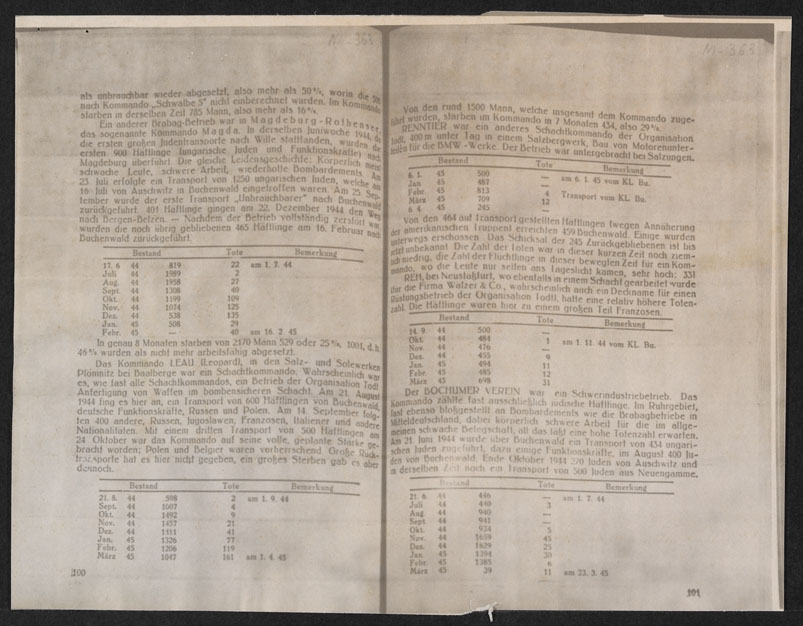 No - 363
als unbrauchbar wieder abgesetzt, also mehr als 50 %, worin die
nach Kommando „Schwalbe 5" nicht einberechnet wurden. Im Kommando
starben in derselben Zeit 785 Mann, also mehr als 16 %.
Ein anderer Brabag-Betrieb war in Magdeburg-Rothensee,
das sogenannte Kommando Magda. In derselben Juniwoche 1944, da
die ersten großen Judentransporte nach Wille stattfanden, wurden die
ersten 900 Häftlinge (ungarische Juden und Funktionskräfte) nach
Magdeburg überführt. Die gleiche Leidensgeschichte: Körperlich meist
schwache Leute, schwere Arbeit, wiederholte Bombardements. Am
25. Juli erfolgte ein Transport von 1250 ungarischen Juden, welche am
16. Juli von Auschwitz in Buchenwald eingetroffen waren. Am 25. Sep-
tember wurde der erste Transport „Unbrauchbarer" nach Buchenwald
zurückgeführt. 401 Häftlinge gingen am 22. Dezember 1944 den Weg
nach Bergen-Belzen. — Nachdem der Betrieb vollständig zerstört war,
wurden die noch übrig gebliebenen 465 Häftlinge am 16. Februar nach
Buchenwald zurückgeführt.
Bestand Tote Bemerkung
17. 6 44 819 22 am 1. 7. 44
Juli 44 1989 2
Aug. 44 1958 27
Sept. 44 1308 40
Okt. 44 1199 109
Nov. 44 1074 125
Dez. 44 538 135
Jan. 45 508 29
Febr. 45 — 40 am 16. 2. 45
In genau 8 Monaten starben von 2170 Mann 529 oder 25 %, 1001, d. h.
46 % wurden als nicht mehr arbeitsfähig abgesetzt.
Das Kommando LEAU (Leopard), in den Salz- und Solewerken
Plömnitz bei Baalberge war ein Schachtkommando. Wahrscheinlich war
es, wie fast alle Schachtkommandos, ein Betrieb der Organisation Todt
Anfertigung von Waffen im bombensicheren Schacht. Am 21. August
1944 fing es hier an, ein Transport von 600 Häftlingen von Buchenwald,
deutsche Funktionskräfte, Russen und Polen. Am 14. September folg-
ten 400 andere, Russen, Jugoslawen, Franzosen, Italiener und andere
Nationalitäten. Mit einem dritten Transport von 500 Häftlingen am
24. Oktober war das Kommando auf seine volle, geplante Stärke ge-
bracht worden; Polen und Belgier waren vorherrschend. Große Rück-
transporte hat es hier nicht gegeben, ein großes Sterben gab es aber
dennoch.
Bestand Tote Bemerkung
21. 8. 44 598 2 am 1. 9. 44
Sept. 44 1007 4
Okt. 44 1492 9
Nov. 44 1457 21
Dez. 44 1411 41
Jan. 45 1326 77
Febr. 45 1206 119
März 45 1047 161 am 3. 4. 45
100
- 363
Von den rund 1500 Mann, welche insgesamt dem Kommando zuge-
führt wurden, starben im Kommando in 7 Monaten 434, also 29 %.
RENNTIER war ein anderes Schachtkommando der Organisation
Todt, 400 m unter Tag in einem Salzbergwerk, Bau von Motorenunter-
teilen für die BMW-Werke. Der Betrieb war untergebracht bei Salzungen.
Bestand Tote Bemerkung
6. 1. 45 500 — am 6. 1. 45 vom KL. Bu.
Jan 45 487 —
Febr. 45 813 4 Transport vom KL. Bu.
März 45 709 12
6. 4. 45 245 —
Von den 464 auf Transport gestellten Häftlingen (wegen Annäherung
der amerikanischen Truppen) erreichten 459 Buchenwald. Einige wurden
unterwegs erschossen. Das Schicksal der 245 Zurückgebliebenen ist bis
jetzt unbekannt. Die Zahl der Toten war in dieser kurzen Zeit noch ziem-
lich niedrig, die Zahl der Flüchtlinge in dieser bewegten Zeit für ein Kom-
mando, wo die Leute nur selten ans Tageslicht kamen, sehr hoch: 33!
REH, bei Neustaßfurt, wo ebenfalls in einem Schacht gearbeitet wurde
für die Firma Walzer & Co., wahrscheinlich auch ein Deckname für einen
Rüstungsbetrieb der Organisation Todt, hatte eine relativ höhere Toten-
zahl. Die Häftlinge waren hier zu einem großen Teil Franzosen.
Bestand Tote Bemerkung
14. 9. 44 500 —
Okt. 44 484 1 am 1. 11. 44 vom KL. Bu.
Nov. 44 476 —
Dez. 44 455 9
Jan. 45 494 11
Febr. 45 485 12
März 45 698 31
Der BOCHUMER VEREIN war ein Schwerindustriebetrieb. Das
Kommando zählte fast ausschließlich jüdische Häftlinge. Im Ruhrgebiet,
fast ebenso bloßgestellt an Bombardements wie die Brabagbetriebe in
Mitteldeutschland, dabei körperlich schwere Arbeit für die im allge-
meinen schwache Belegschaft, all das läßt eine hohe Totenzahl erwarten.
Am 21. Juni 1944 wurde über Buchenwald ein Transport von 434 ungari-
schen Juden zugeführt, dazu einige Funktionskräfte, im August 400 Ju-
den von Buchenwald. Ende Oktober 1944 270 Juden von Auschwitz und
in derselben Zeit noch ein Transport von 500 Juden aus Neuengamme.
Bestand Tote Bemerkung
21. 6. 44 446 — am 1. 7. 44
Juli 44 440 3
Aug. 44 940 —
Sept 44 941 —
Okt. 44 924 5
Nov. 44 1659 45
Dez. 44 1629 25
Jan. 45 1394 30
Febr. 45 1385 6
März 45 39 11 am 23. 3. 45
101